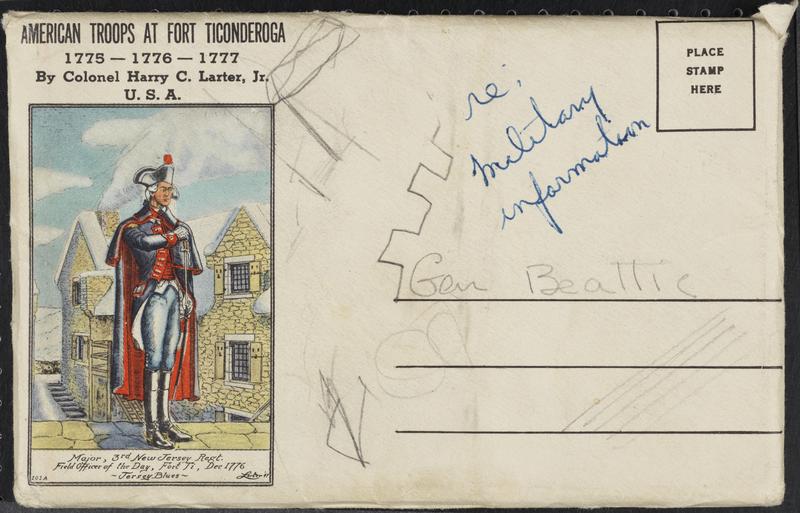 AMERICAN TROOPS AT FORT TICONDEROGA
1775 — 1776 — 1777
By Colonel Harry C. Larter, Jr.
U. S. A.
PLACE
STAMP
HERE
re:
military
information
Gen Beattie
Major, 3rd New Jersey Regt.
Field Officer of the Day, Fort Ti, Dec 1776
~Jersey Blues~
102A
Larter 41